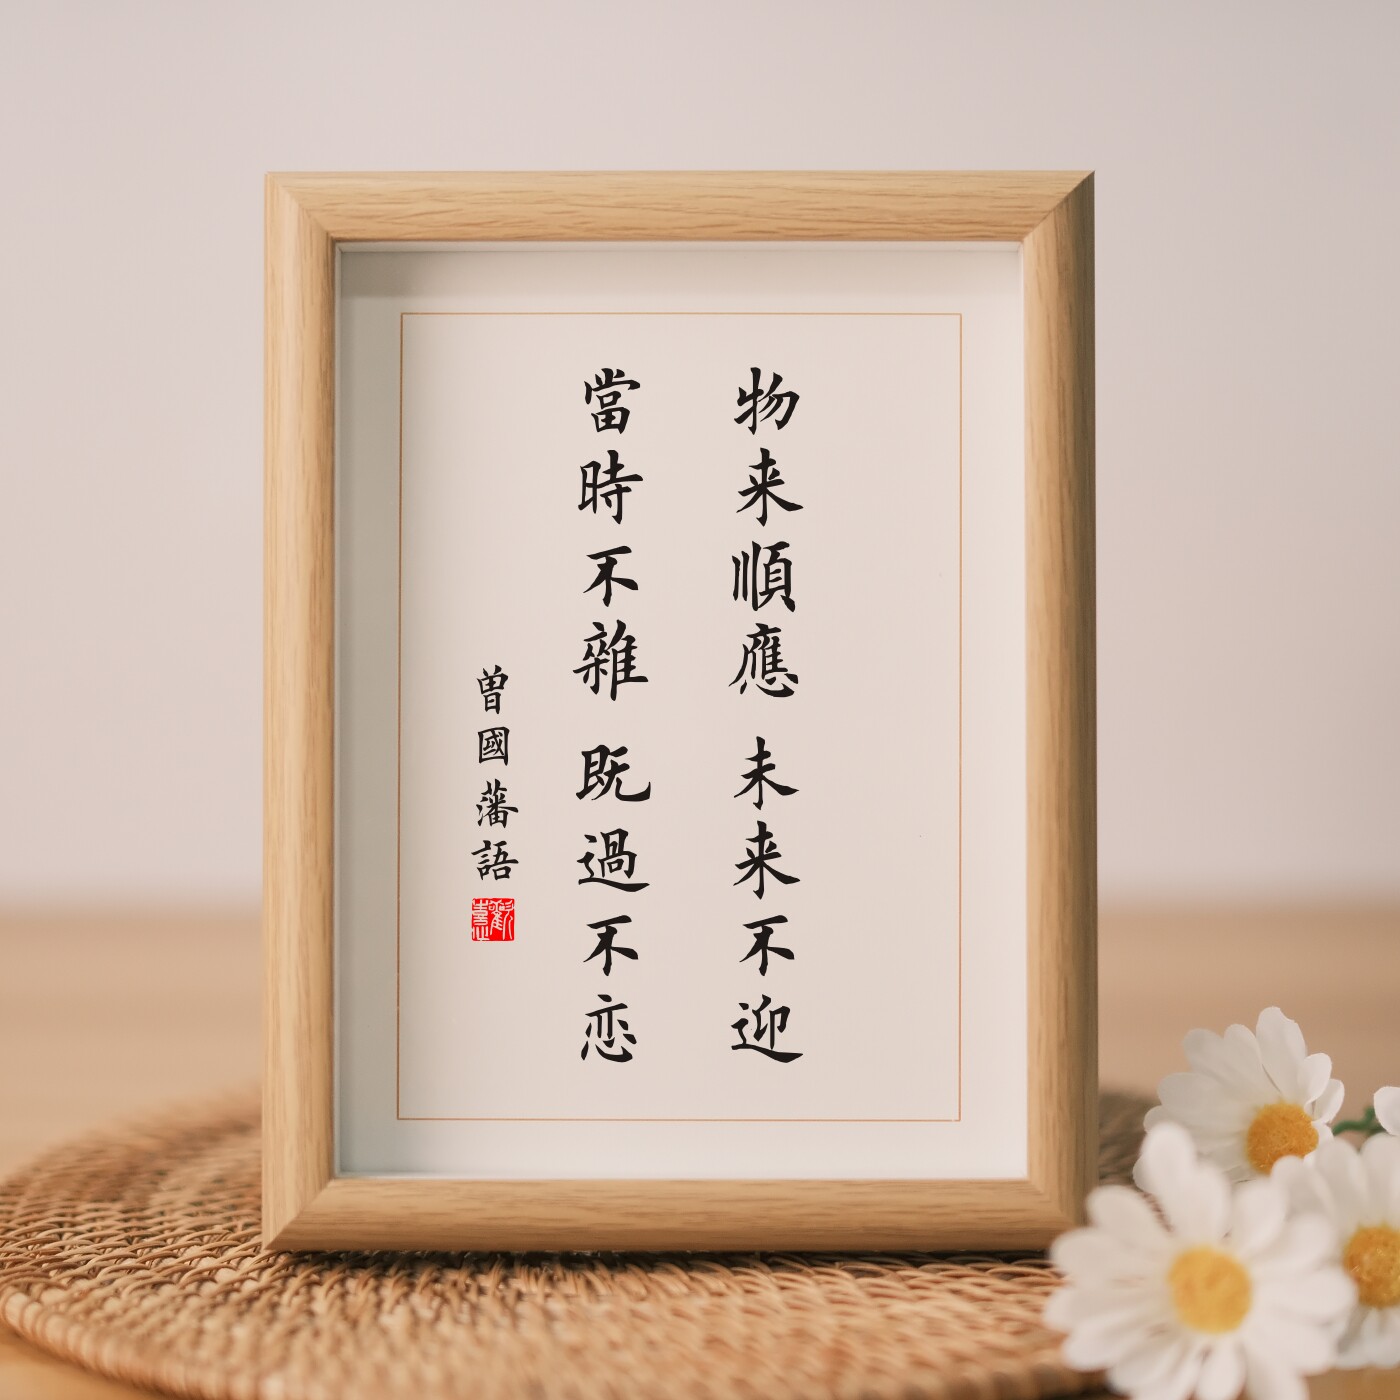 物来順應 未来不迎
當時不雜 既過不恋
曾國藩語